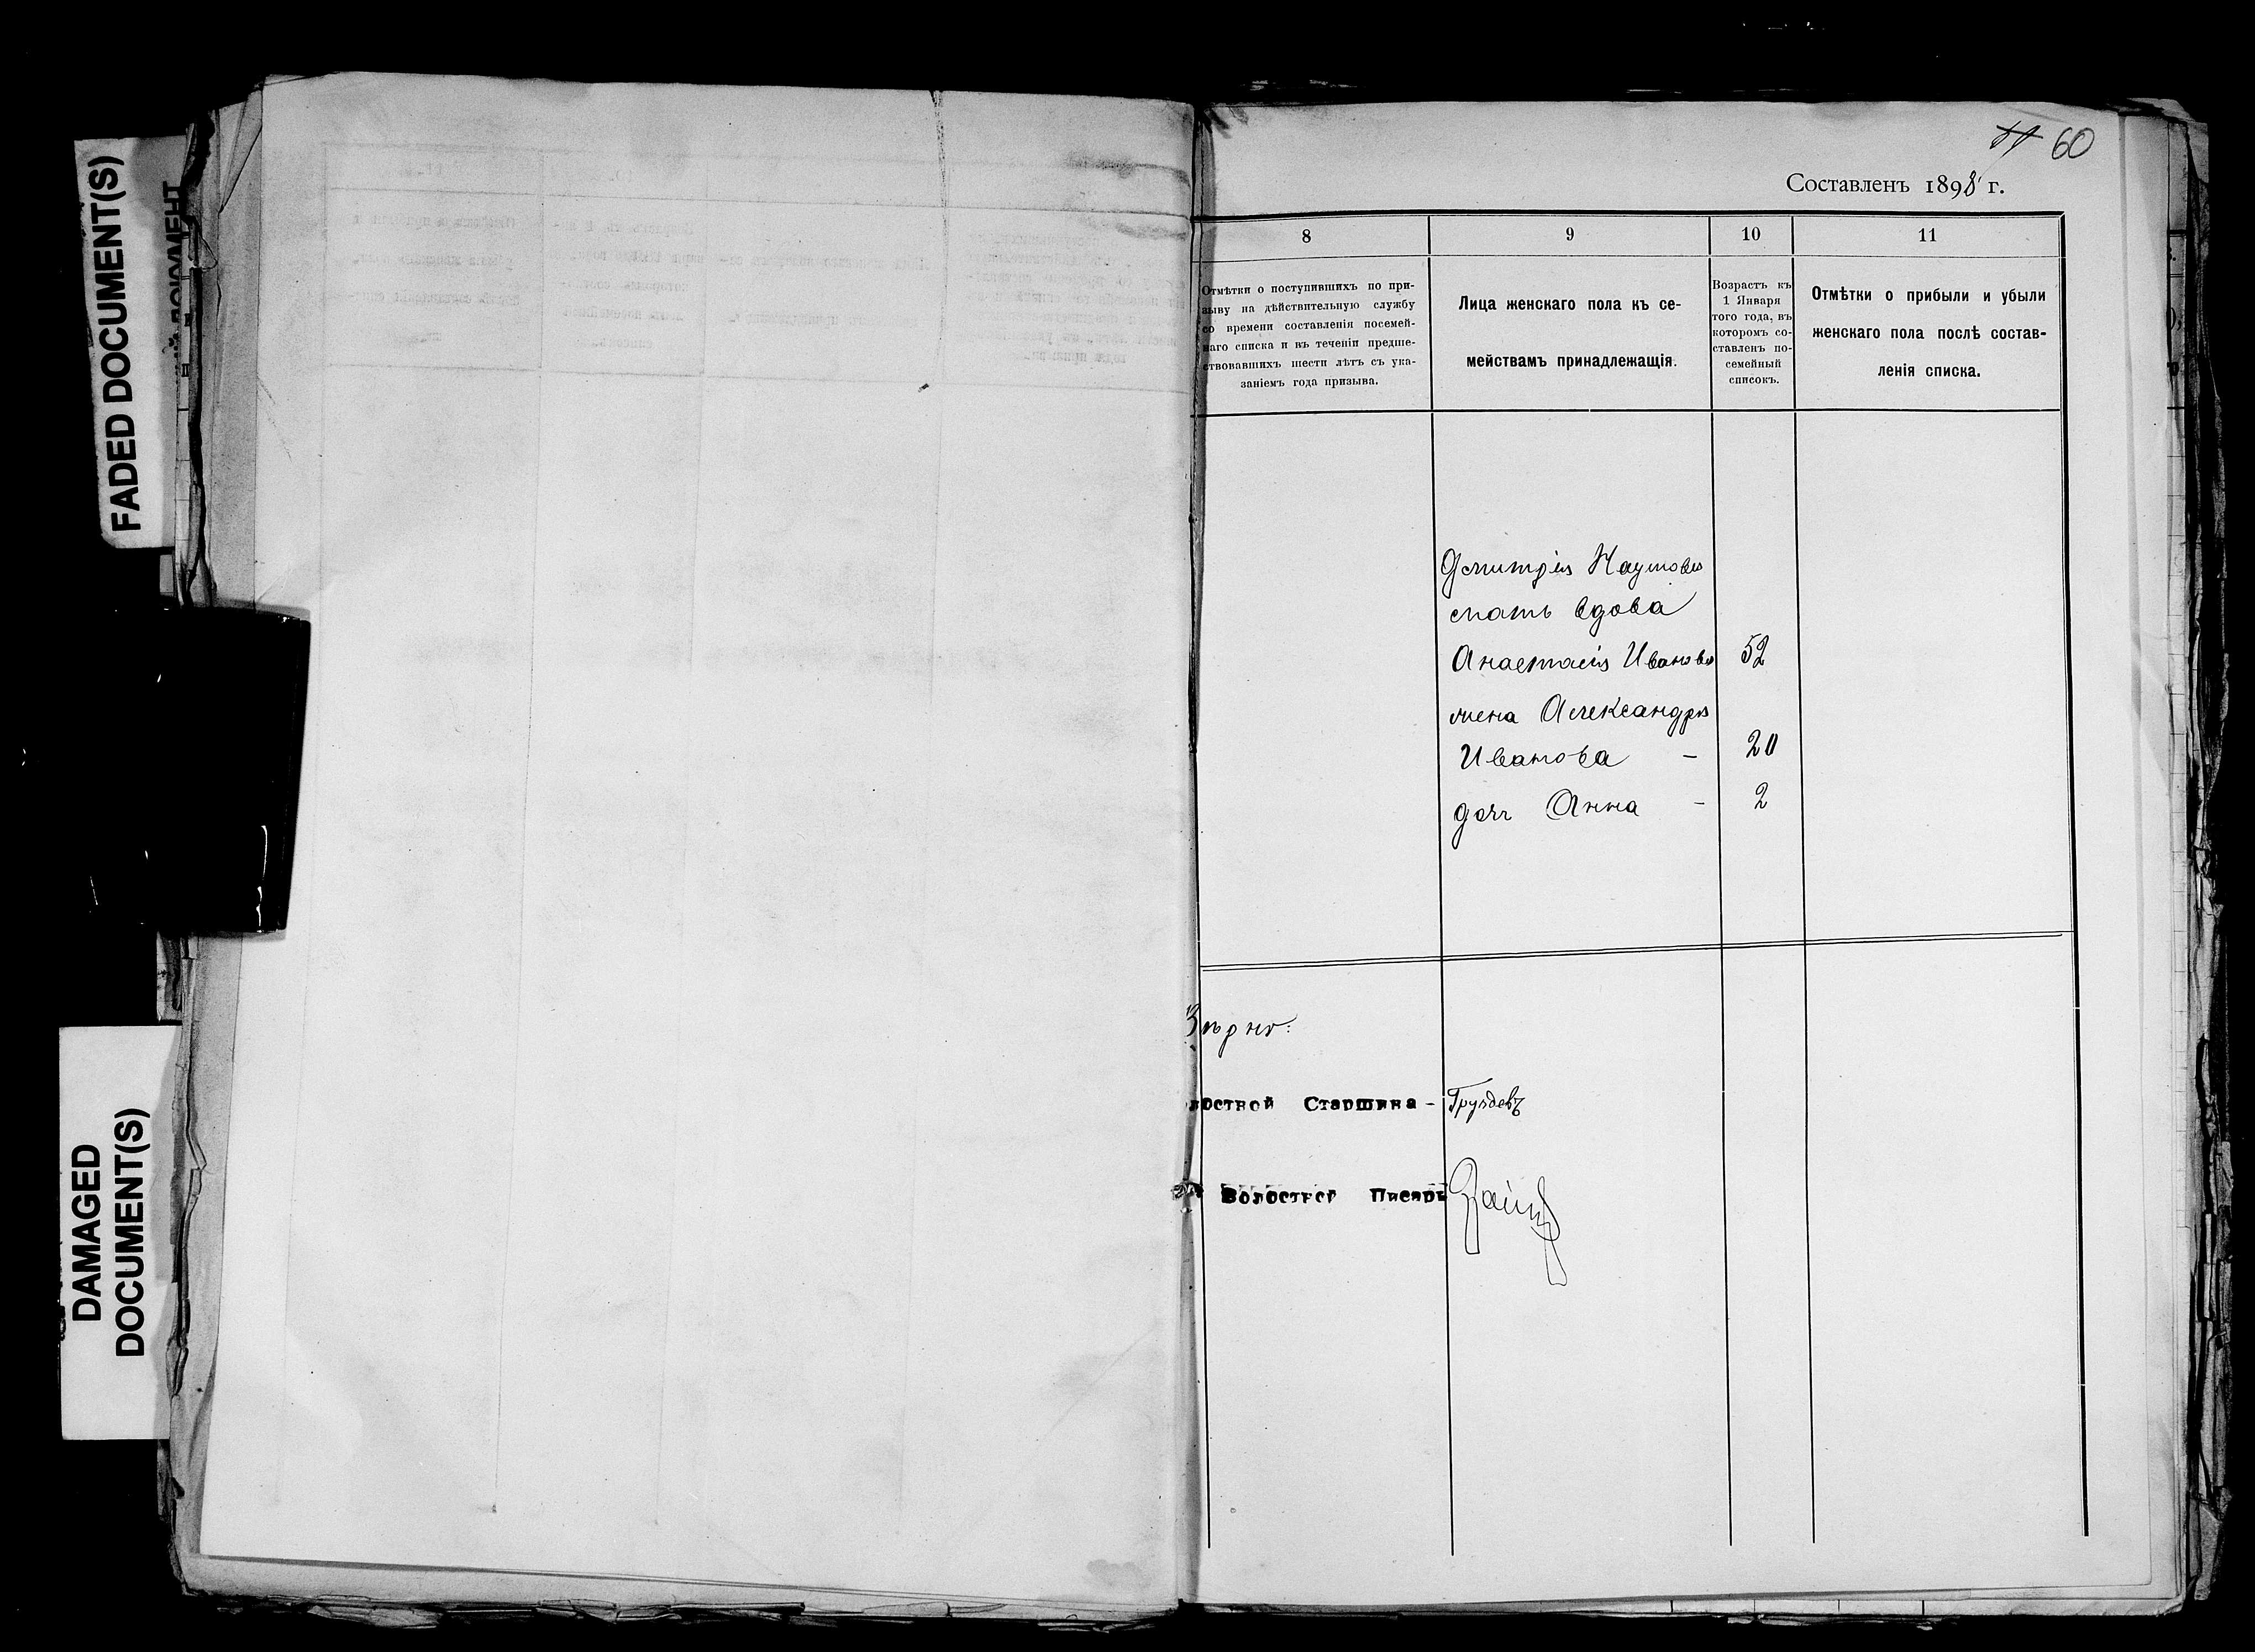 FADED DOCUMENT(S)
ДОКУМЕНТ
DAMAGED
DOCUMENT(S)
60
Составленъ 1898 г.
8
9
10
11
Отмѣтки о поступившихъ по при-
зыву на дѣйствительную службу
со времени составленія посемей-
наго списка и въ теченіи предше-
ствовавшихъ шести лѣтъ съ ука-
заніемъ года призыва.
Лица женскаго пола къ се-
мействамъ принадлежащія.
Возрастъ къ
1 Января
того года, въ
которомъ со-
ставленъ по-
семейный
списокъ.
Отмѣтки о прибыли и убыли
женскаго пола послѣ состав-
ленія списка.
Дмитрія Наумова
мать вдова
Анастасія Иванова 52
жена Александра
Иванова — 20
дочь Анна — 2
Вѣрно:
лостной Старшина — Груздевъ
Волостной Писарь